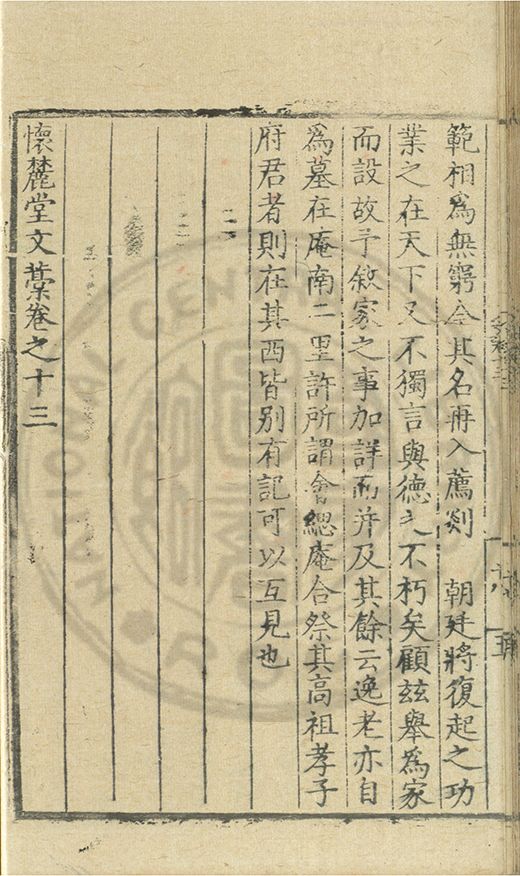 範相爲無窮今其名再入薦剡　朝廷將復起之功
業之在天下又不獨言與德之不朽矣顧茲舉爲家
而設故予敘家之事加詳而并及其餘云逸老亦自
爲墓在庵南二里許所謂會總庵合祭其高祖孝子
府君者則在其西皆别有記可以互見也
懷麓堂文藁卷之十三